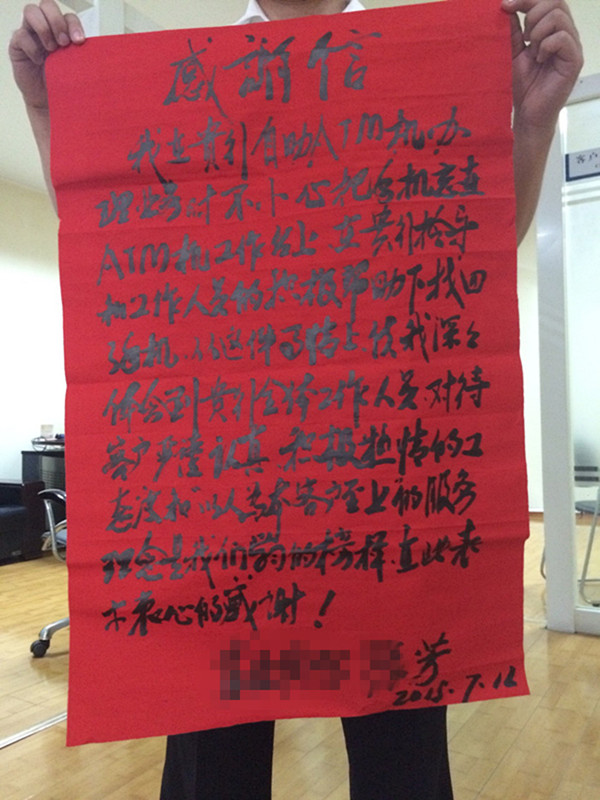 感謝信
我在貴行自助ATM机办
理业务时不小心把手机忘在
ATM机工作台上,在貴行领导
和工作人员的热极帮助下找回
手机,从这件事情上使我深々
体会到貴行全体工作人员,对待
客户严谨认真,积极热情的工
态度和以人为本客户至上的服务
理念是我们学的榜样,在此表
示衷心的感谢!
芳
2015.7.12
客户